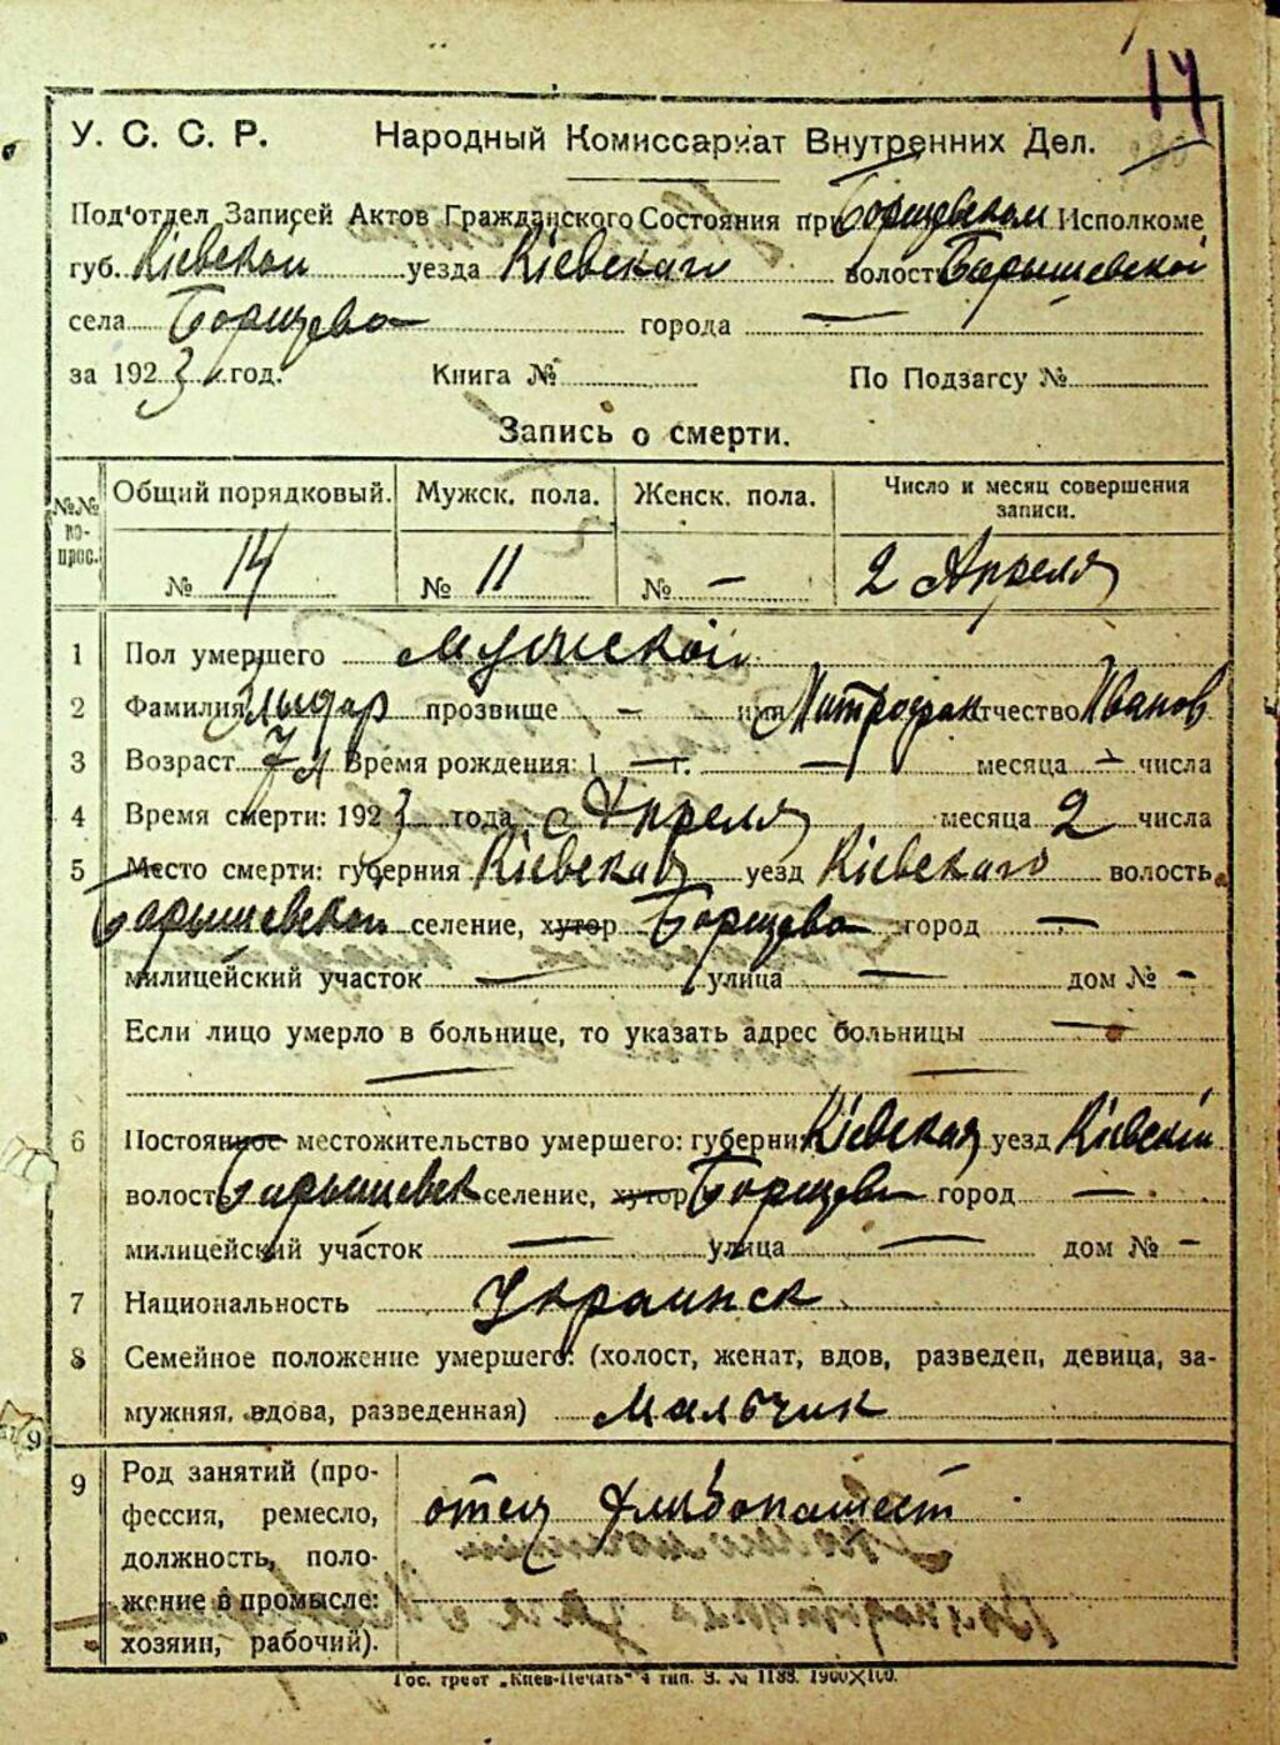 14
У. С. С. Р. Народный Комиссариат Внутренних Дел.
Под'отдел Записей Актов Гражданского Состояния при Борщевском Исполкоме
губ. Кіевской уезда Кіевскаго волости Барышевской
села Борщева города —
за 1923 год. Книга № По Подзагсу №
Запись о смерти.
№№ вопрос. Общий порядковый. Мужск. пола. Женск. пола. Число и месяц совершения записи.
№ 14 № 11 № — 2 Апреля
1 Пол умершего мужской
2 Фамилия прозвище — имя Митрофан отчество Иванов
3 Возраст 7 л Время рождения: 1 — г. — месяца — числа
4 Время смерти: 1923 года с Апреля месяца 2 числа
5 Место смерти: губерния Кіевская уезд Кіевскаго волость
Барышевской селение, хутор Борщева город —
милицейский участок — улица — дом № —
Если лицо умерло в больнице, то указать адрес больницы —
— —
6 Постоянное местожительство умершего: губерния Кіевская уезд Кіевскій
волость Барышевск селение, хутор Борщев город —
милицейский участок — улица — дом № —
7 Национальность Украинск
8 Семейное положение умершего: (холост, женат, вдов, разведен, девица, за-
мужняя, вдова, разведенная) Мальчик
9 Род занятий (про-
фессия, ремесло,
должность, поло-
жение в промысле:
хозяин, рабочий).
отец
Гос. трест „Киев-Печать" 4 тип. З. № 1188. 1900×100.